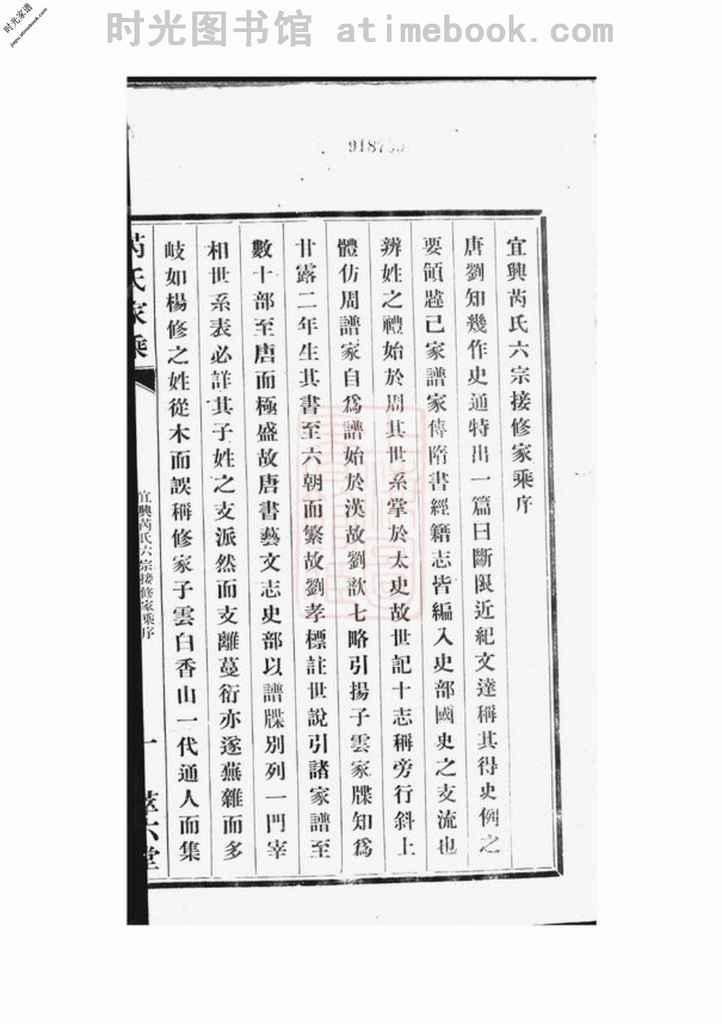 时光图书馆 atimebook.com
时光家谱
jiapu.atimebook.com
宜興芮氏六宗接修家乘序
唐劉知幾作史通特出一篇曰斷限近紀文達稱其得史例之
要領蹉己家譜家傳隋書經籍志皆編入史部國史之支流也
辨姓之禮始於周其世系掌於太史故世記十志稱旁行斜上
體仿周譜家自爲譜始於漢故劉歆七略引揚子雲家牒知爲
甘露二年生其書至六朝而繁故劉孝標註世說引諸家譜至
數十部至唐而極盛故唐書藝文志史部以譜牒別列一門宰
相世系表必詳其子姓之支派然而支離蔓衍亦遂蕪雜而多
岐如楊修之姓從木而誤稱修家子雲白香山一代通人而集
芮氏家乘
宜興芮氏六宗接修家乘序
一
六堂